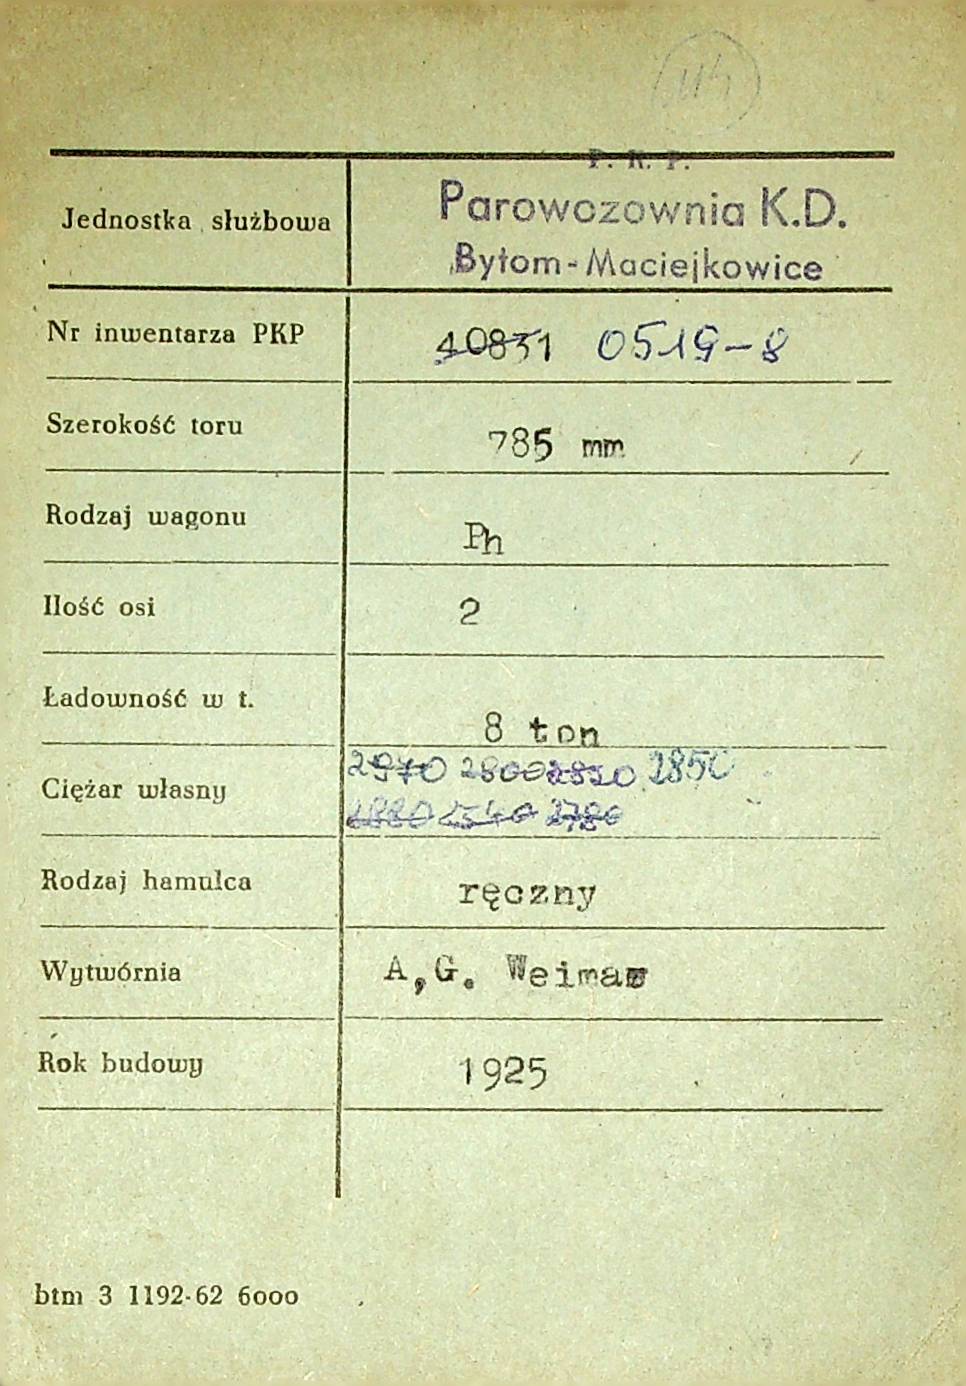 114
P. K. P.
Jednostka służbowa Parowozownia K.D.
Bytom-Maciejkowice
Nr inwentarza PKP 40831 0519-8
Szerokość toru 785 mm
Rodzaj wagonu Ph
Ilość osi 2
Ładowność w t. 8 ton
Ciężar własny 2970 2800 2820 2850
2540 2780
Rodzaj hamulca ręczny
Wytwórnia A,G. Weimar
Rok budowy 1925
btm 3 1192-62 6000